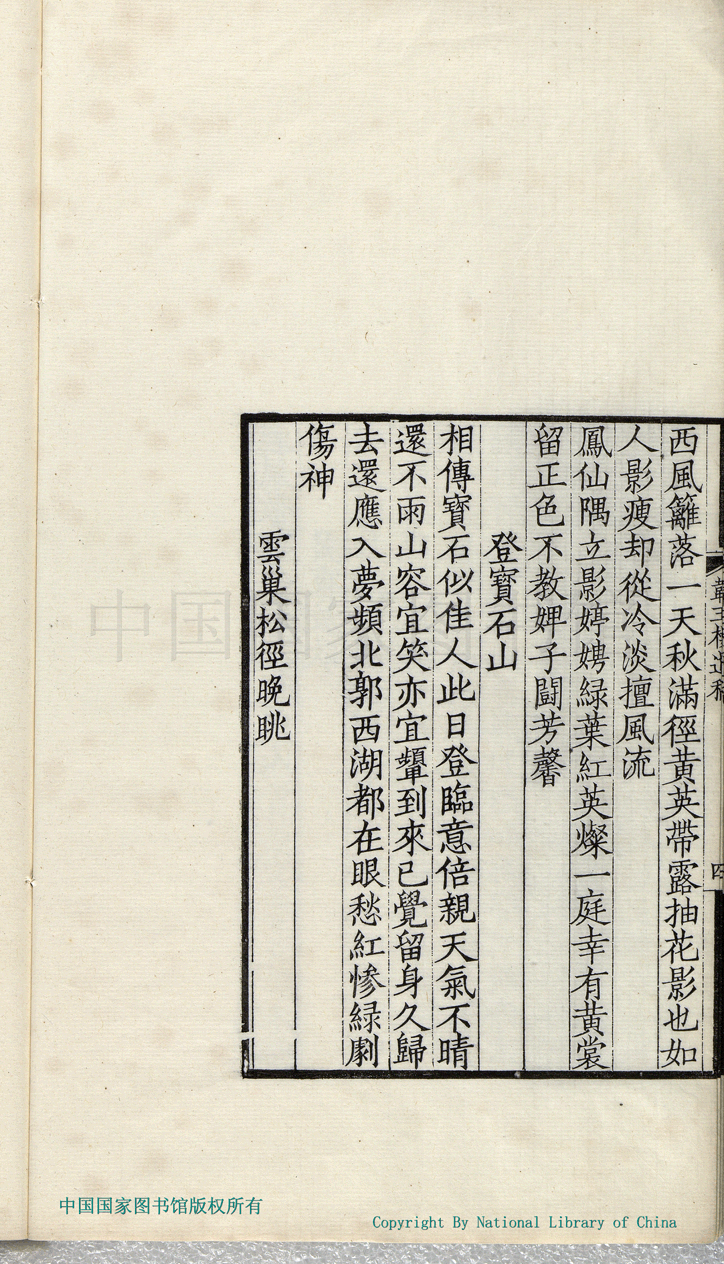 西風籬落一天秋滿徑黃英帶露抽花影也如
人影瘦却從冷淡擅風流
鳳仙隅立影婷娉綠葉紅英燦一庭幸有黃裳
留正色不教婢子鬪芳馨
登寶石山
相傳寶石似佳人此日登臨意倍親天氣不晴
還不雨山容宜笑亦宜顰到來已覺留身久歸
去還應入夢頻北郭西湖都在眼愁紅慘綠劇
傷神
雲巢松徑晚眺
四
中国国家图书馆版权所有
Copyright By National Library of China